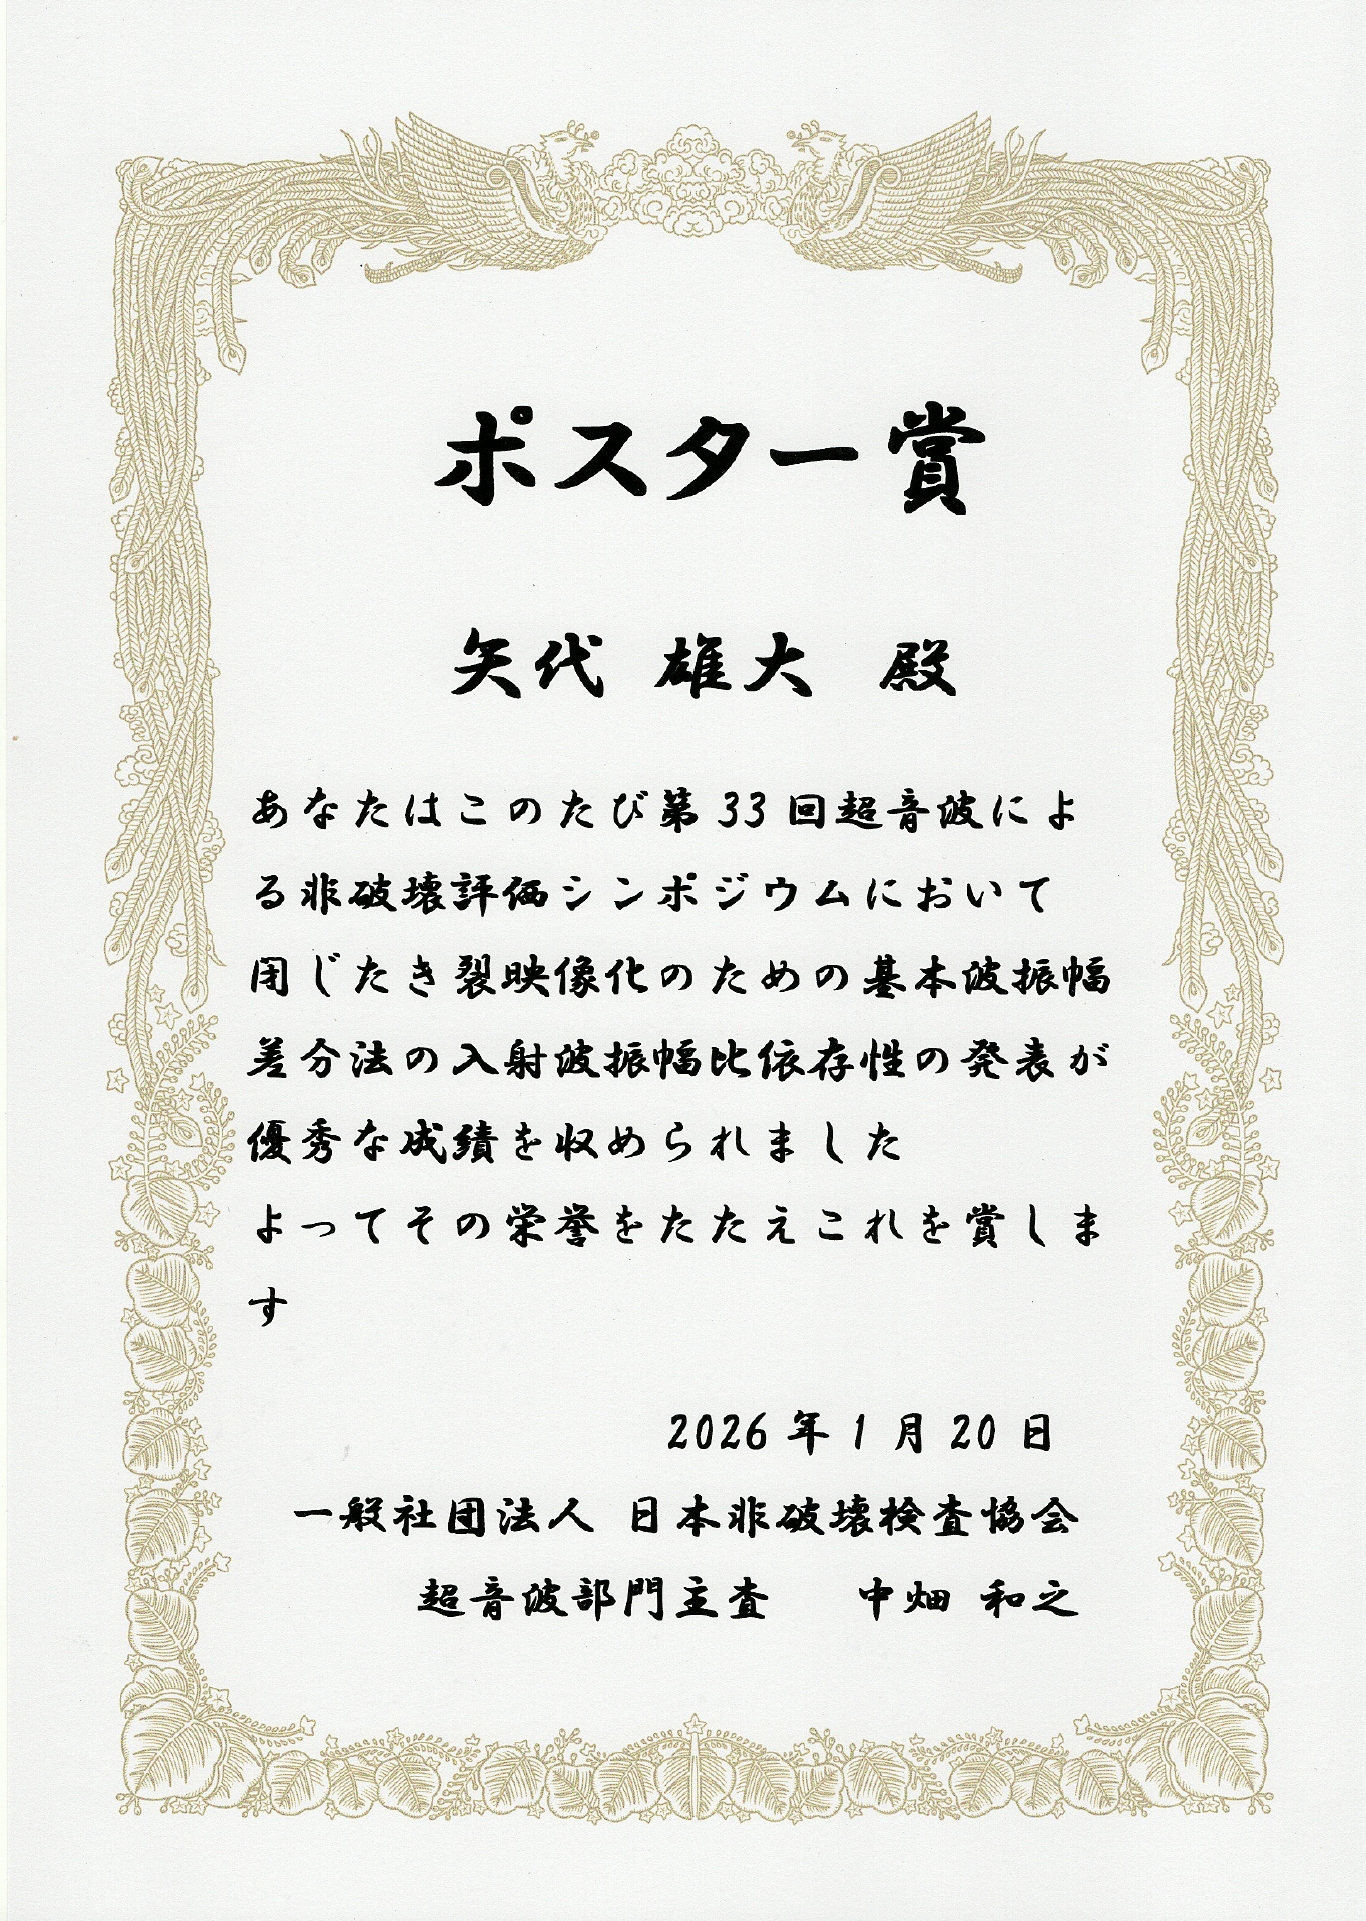 ポスター賞
矢代 雄大 殿
あなたはこのたび第33回超音波によ
る非破壊評価シンポジウムにおいて
閉じたき裂映像化のための基本波振幅
差分法の入射波振幅比依存性の発表が
優秀な成績を収められました
よってその栄誉をたたえこれを賞しま
す
2026年1月20日
一般社団法人 日本非破壊検査協会
超音波部門主査 中畑 和之